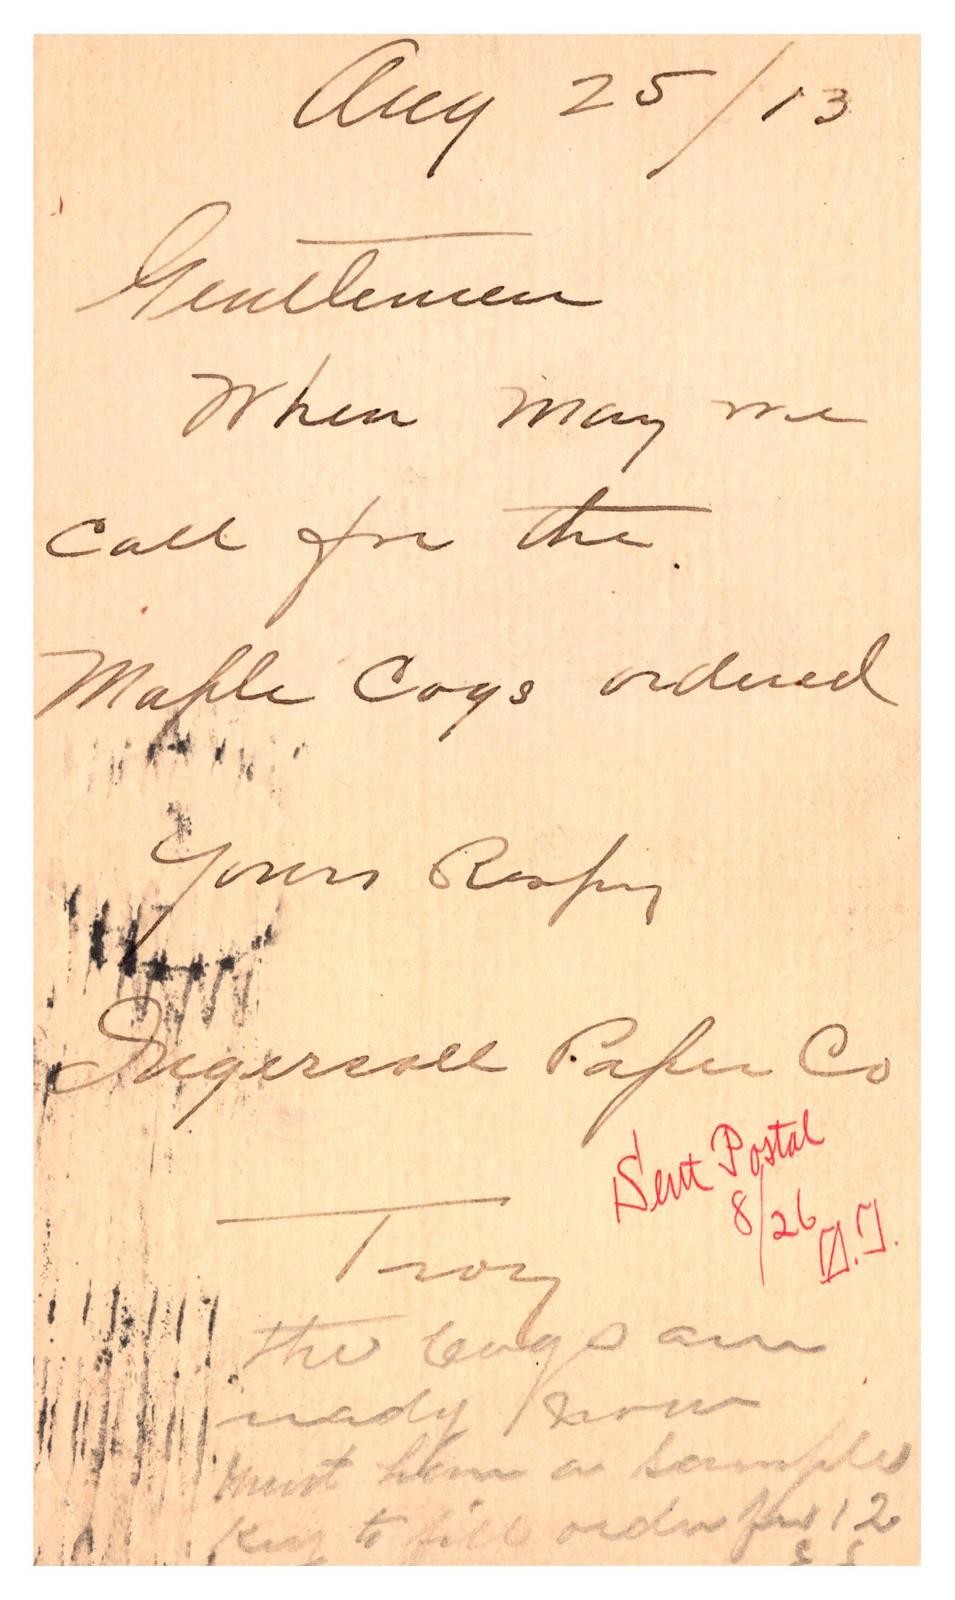 Aug 25/13
Gentlemen
When may we
call for the
Maple Cogs ordered
Yours Respy
Ingersoll Paper Co
Sent Postal
8/26
Troy
the Cogs are
ready now
must have a sample
Key to fill order for 12